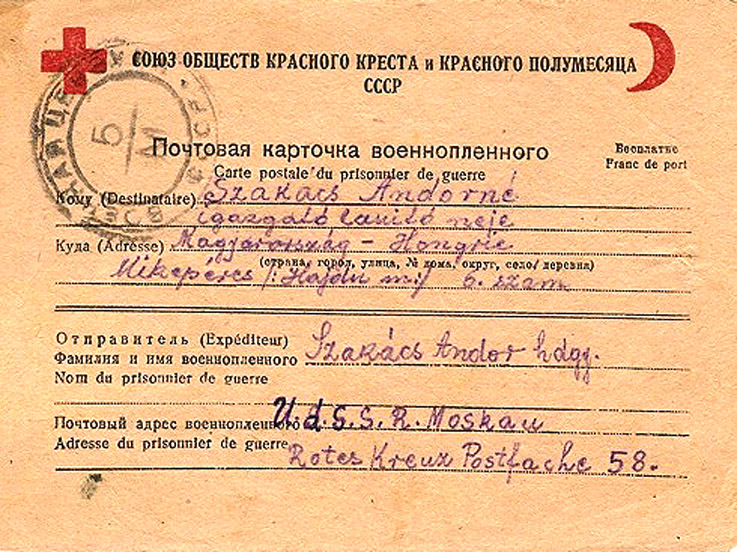 СОЮЗ ОБЩЕСТВ КРАСНОГО КРЕСТА и КРАСНОГО ПОЛУМЕСЯЦА
СССР
Б/М
Почтовая карточка военнопленного
Бесплатно
Carte postale du prisonnier de guerre
Franc de port
Кому (Destinataire) Szakács Andorné
igazgató tanító neje
Куда (Adresse) Magyarország - Hongrie
(страна, город, улица, № дома, округ, село, деревня)
Mikepércs /:Hajdu m:/ 6. szám
Отправитель (Expéditeur)
Фамилия и имя военнопленного Szakács Andor hdgj.
Nom du prisonnier de guerre
Почтовый адрес военнопленного U.d.S.S.R. Moskau
Adresse du prisonnier de guerre Rotes Kreuz Postfache 58.